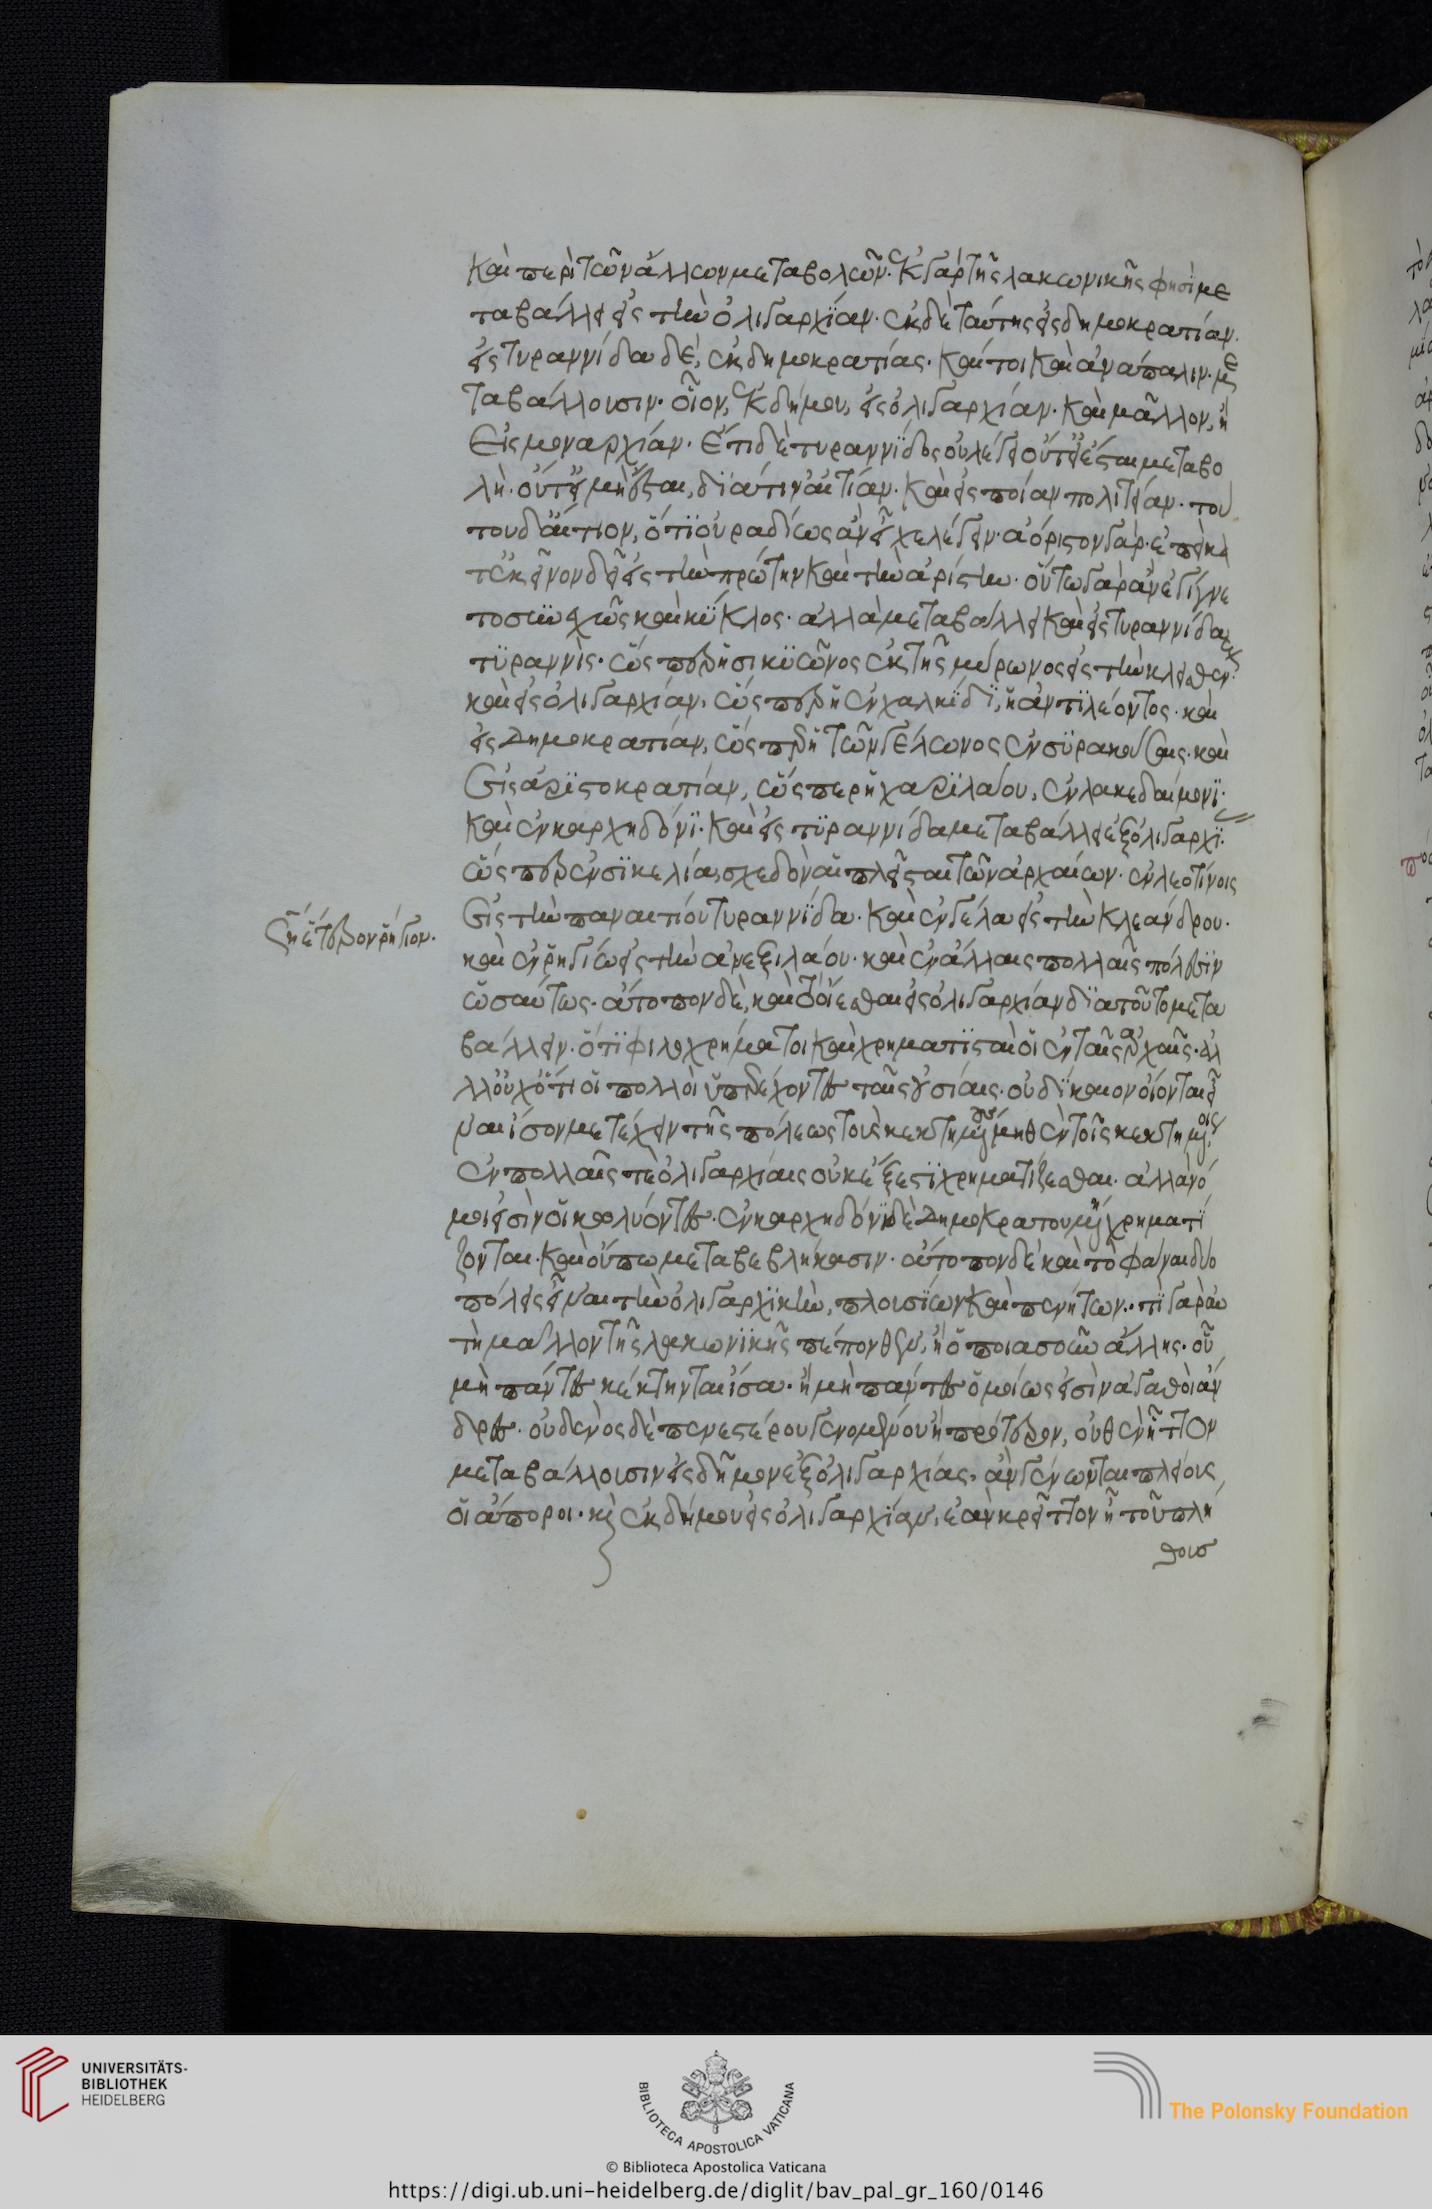 καὶ περὶ τῶν ἄλλων μεταβολῶν. ἐκ γὰρ τῆς λακωνικῆς φησὶ με
ταβάλλειν εἰς τὴν ὀλιγαρχίαν. ἐκ δὲ ταύτης εἰς δημοκρατίαν.
εἰς τυραννίδα δὲ, ἐκ δημοκρατίας. καίτοι καὶ ἀνάπαλιν με
ταβάλλουσιν. οἷον, ἐκ δήμου, εἰς ὀλιγαρχίαν. καὶ μᾶλλον, ἢ
εἰς μοναρχίαν. ἔτι δὲ τυραννίδος οὐ λέγει οὔτ' εἰ ἔσται μεταβο
λὴ. οὔτ' εἰ μὴ ἔσται, δι' ἅτιν' αἰτίαν. καὶ εἰς ποίαν πολιτείαν. του
του δ' αἴτιον, ὅτι οὐ ραδίως ἂν εἶχε λέγειν. ἀόριστον γάρ. ἐπεὶ κα
τ' ἐκεῖνον δεῖ εἰς τὴν πρώτην καὶ τὴν ἀρίστην. οὕτω γὰρ ἂν ἐγίγνε
το συνεχὴς καὶ κύκλος. ἀλλὰ μεταβάλλει καὶ εἰς τυραννίδα
τυραννὶς. ὥσπερ ἡ σικυῶνος ἐκ τῆς μύρωνος εἰς τὴν κλεισθεν
καὶ εἰς ὀλιγαρχίαν, ὥσπερ ἡ ἐν χαλκίδι, ἡ ἀντιλέοντος. καὶ
εἰς δημοκρατίαν, ὥσπερ ἡ τῶν γέλωνος ἐν συρακούσαις. καὶ
εἰς ἀριστοκρατίαν, ὥσπερ ἡ χαριλάου, ἐν λακεδαίμονι.
καὶ ἐν καρχηδόνι. καὶ εἰς τυραννίδα μεταβάλλει ἐξ ὀλιγαρχι.
ὥσπερ ἐν σικελία, σχεδὸν αἱ πλεῖσται τῶν ἀρχαίων. ἐν λεοτίνοις
εἰς τὴν παναιτίου τυραννίδα. καὶ ἐν γέλα εἰς τὴν κλεάνδρου.
ῥήγιον.
καὶ ἐν ῥηγίω εἰς τὴν ἀνεξιλάου. καὶ ἐν ἄλλαις πολλαῖς πόλεσιν
ὡσαύτως. ἄτοπον δὲ, καὶ τὸ οἴεσθαι εἰς ὀλιγαρχίαν διατοῦτο μετα
βάλλειν. ὅτι φιλοχρήματοι καὶ χρηματισταὶ οἱ ἐν ταῖς ἀρχαῖς. ἀλ
λ' οὐχ ὅτι οἱ πολλοὶ ὑπερέχοντες ταῖς οὐσίαις. οὐ δίκαιον οἴονται εἶ
ναι ἴσον μετέχειν τῆς πόλεως τοὺς κεκτημένους μηθὲν τοῖς κεκτημένοις.
ἐν πολλαῖς τε ὀλιγαρχίαις οὐκ ἔξεστι χρηματίζεσθαι. ἀλλὰ νό
μοι εἰσὶν οἱ κωλύοντες. ἐν καρχηδόνι δὲ δημοκρατουμένη χρηματί
ζονται. καὶ οὔπω μεταβεβλήκασιν. ἄτοπον δὲ καὶ τὸ φάναι δύο
πόλεις εἶναι τὴν ὀλιγαρχικὴν, πλουσίων καὶ πενήτων. τί γὰρ αὕ
τη μᾶλλον τῆς λακωνικῆς πέπονθεν, ἢ ὁποιασοῦν ἄλλης. οὗ
μὴ πάντες κέκτηνται ἴσα. ἢ μὴ πάντες ὁμοίως εἰσὶν ἀγαθοὶ ἄν
δρες. οὐδενὸς δὲ πενεστέρου γενομένου ἢ πρότερον, οὐθὲν ἧττον
μεταβάλλουσιν εἰς δῆμον ἐξ ὀλιγαρχίας, ἂν γένωνται πλείους
οἱ ἄποροι. καὶ ἐκ δήμου εἰς ὀλιγαρχίαν, ἐὰν κρεῖττον ἦ τοῦ πλή
θους
UNIVERSITÄTS-
BIBLIOTHEK
HEIDELBERG
BIBLIOTECA APOSTOLICA VATICANA
The Polonsky Foundation
© Biblioteca Apostolica Vaticana
https://digi.ub.uni-heidelberg.de/diglit/bav_pal_gr_160/0146